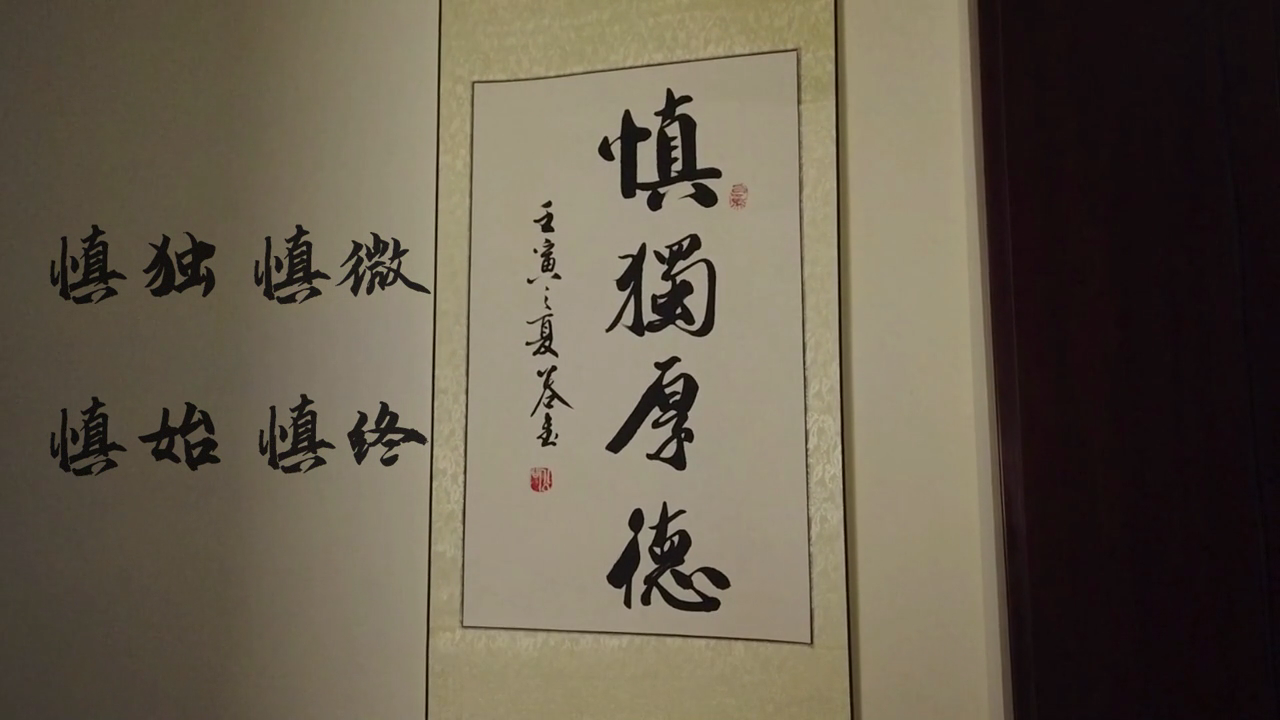 慎独 慎微
慎始 慎终
慎獨厚德
壬寅之夏